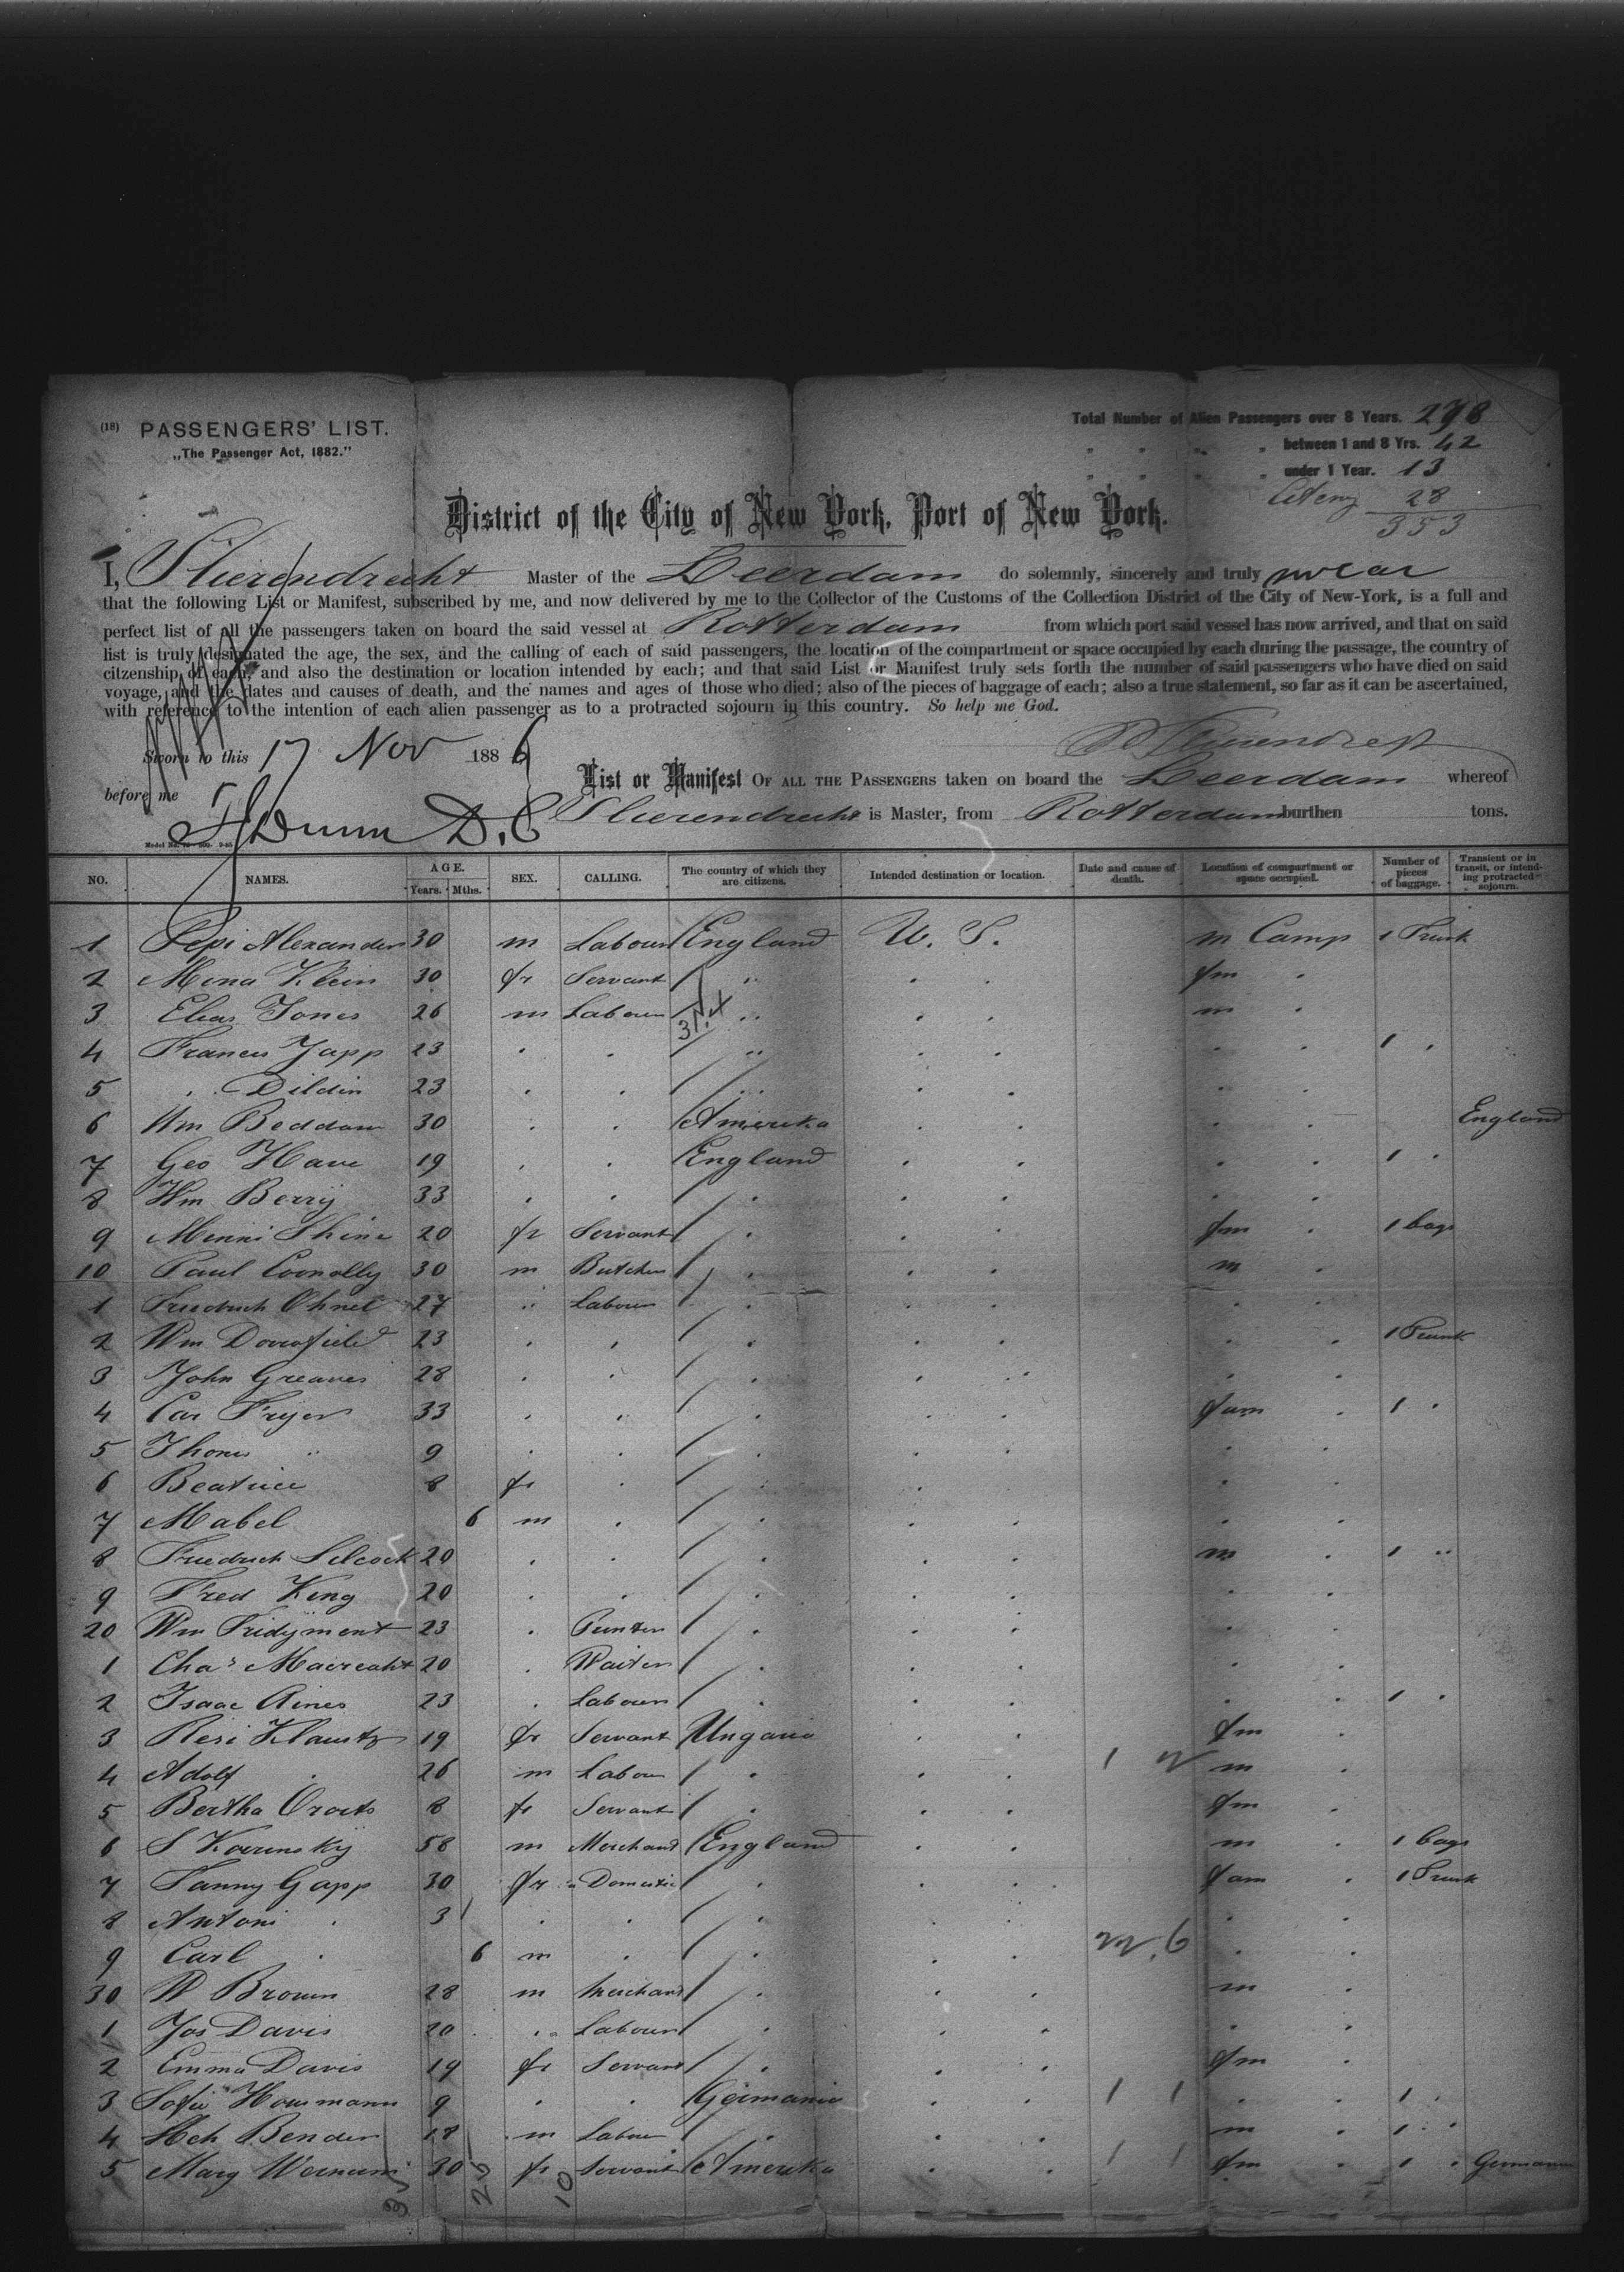 (18) PASSENGERS' LIST.
„The Passenger Act, 1882."
Total Number of Alien Passengers over 8 Years. 298
„ „ „ „ between 1 and 8 Yrs. 42
„ „ „ „ under 1 Year. 13
28
353
District of the City of New York, Port of New York.
I, Stierendrecht Master of the Leerdam do solemnly, sincerely and truly swear
that the following List or Manifest, subscribed by me, and now delivered by me to the Collector of the Customs of the Collection District of the City of New-York, is a full and
perfect list of all the passengers taken on board the said vessel at Rotterdam from which port said vessel has now arrived, and that on said
list is truly designated the age, the sex, and the calling of each of said passengers, the location of the compartment or space occupied by each during the passage, the country of
citzenship of each, and also the destination or location intended by each; and that said List or Manifest truly sets forth the number of said passengers who have died on said
voyage, and the dates and causes of death, and the names and ages of those who died; also of the pieces of baggage of each; also a true statement, so far as it can be ascertained,
with reference to the intention of each alien passenger as to a protracted sojourn in this country. So help me God.
Sworn to this 17 Nov 1886
List or Manifest OF ALL THE PASSENGERS taken on board the Leerdam whereof
before me Dunn D.C
Stierendrecht is Master, from Rotterdam burthen tons.
NO. NAMES. AGE. Years. Mths. SEX. CALLING. The country of which they are citizens. Intended destination or location. Date and cause of death. Location of compartment or space occupied. Number of pieces of baggage. Transient or in transit, or intending protracted sojourn.
1 Pepi Alexander 30 m Labourer England U. S. m Camp 1 Trunk
2 Mena Klein 30 fr Servant " fm
3 Elias Jones 26 m Labourer " m
4 Francis Japp 23 " 1
5 " Dildin 23 "
6 Wm Beddow 30 Amerika England
7 Geo Have 19 England 1
8 Wm Berry 33
9 Menni Shine 20 fr Servant fm 1 bags
10 Paul Connolly 30 m Butcher m
1 Friedrich Ohnel 27 " Labourer
2 Wm Dovefield 23 1 Trunk
3 John Greaves 28
4 Car Fryer 33 fam 1
5 Thomas " 9
6 Beatrice 8 fr
7 Mabel 6 m
8 Friedrich Silcock 20 m 1 "
9 Fred King 20
20 Wm Fridyment 23 Printer
1 Chas Macreaht 20 Waiter
2 Isaac Aines 23 Labourer 1
3 Resi Klautz 19 fr Servant Ungaria fm
4 Adolf 26 m Labour m
5 Bertha 8 fr Servant fm
6 S Kovensky 58 m Merchand England m 1 bags
7 Fanny Gapp 30 fr Domestic fam 1 Trunk
8 Antoni 3
9 Carl 6 m
30 W Brown 28 m Merchand m
1 Jos Davis 20 " Labourer
2 Emma Davis 19 fr Servant fm
3 Sofie Housmann 9 Germania 1 1 1
4 Hch Bender 18 m Labour m 1
5 Mary Wernerm 30 fr Servant Amerika 1 1 fm 1 Germania